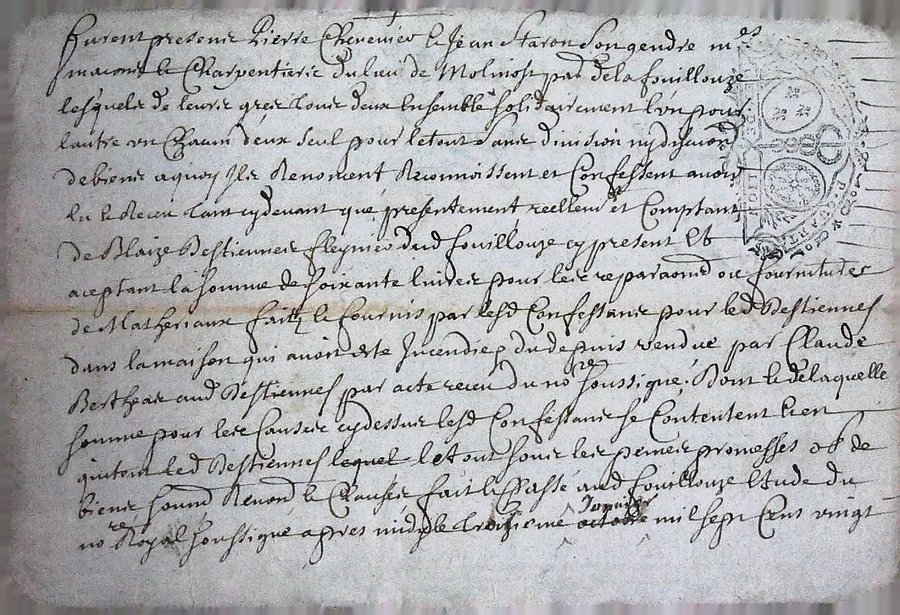 furent presens Pierre Chenevier & Jean Staron son gendre m^es
massons & Charpentiers du lieu de Molinost par^sse de la fouillouze
lesquels de leurs grés tous deux ensemble solidairement l'un pour
lautre un Chacun deux seul pour le tout sans division ny discu^on
de biens a quoy ils Renoncent Reconnoissent et Confessent avoir
eu & Receu tant cy devant que presentement reellem^t et Comptant
de Blaize Bestiennes dud fouillouze cy present Et
aceptant la somme de soixante livres pour les reparaons ou fournitures
de Matheriaux faits & fournis par lesd Confessans pour led Bestiennes
dans la maison qui avoit esté Incendiée du depuis vendue par Claude
Bertheas aud Bestiennes par acte receu du no^re soussigné. Dont & de laquelle
somme pour les Causes cy dessus lesd Confessans se Contentent & en
quitent led Bestiennes le tout sous les peines promesses ob de
biens soum Renon & Clauses fait & Passé aud fouillouze Etude du
no^re Royal soussigné apres midy le treizieme octobre Janvier mil sept Cent vingt